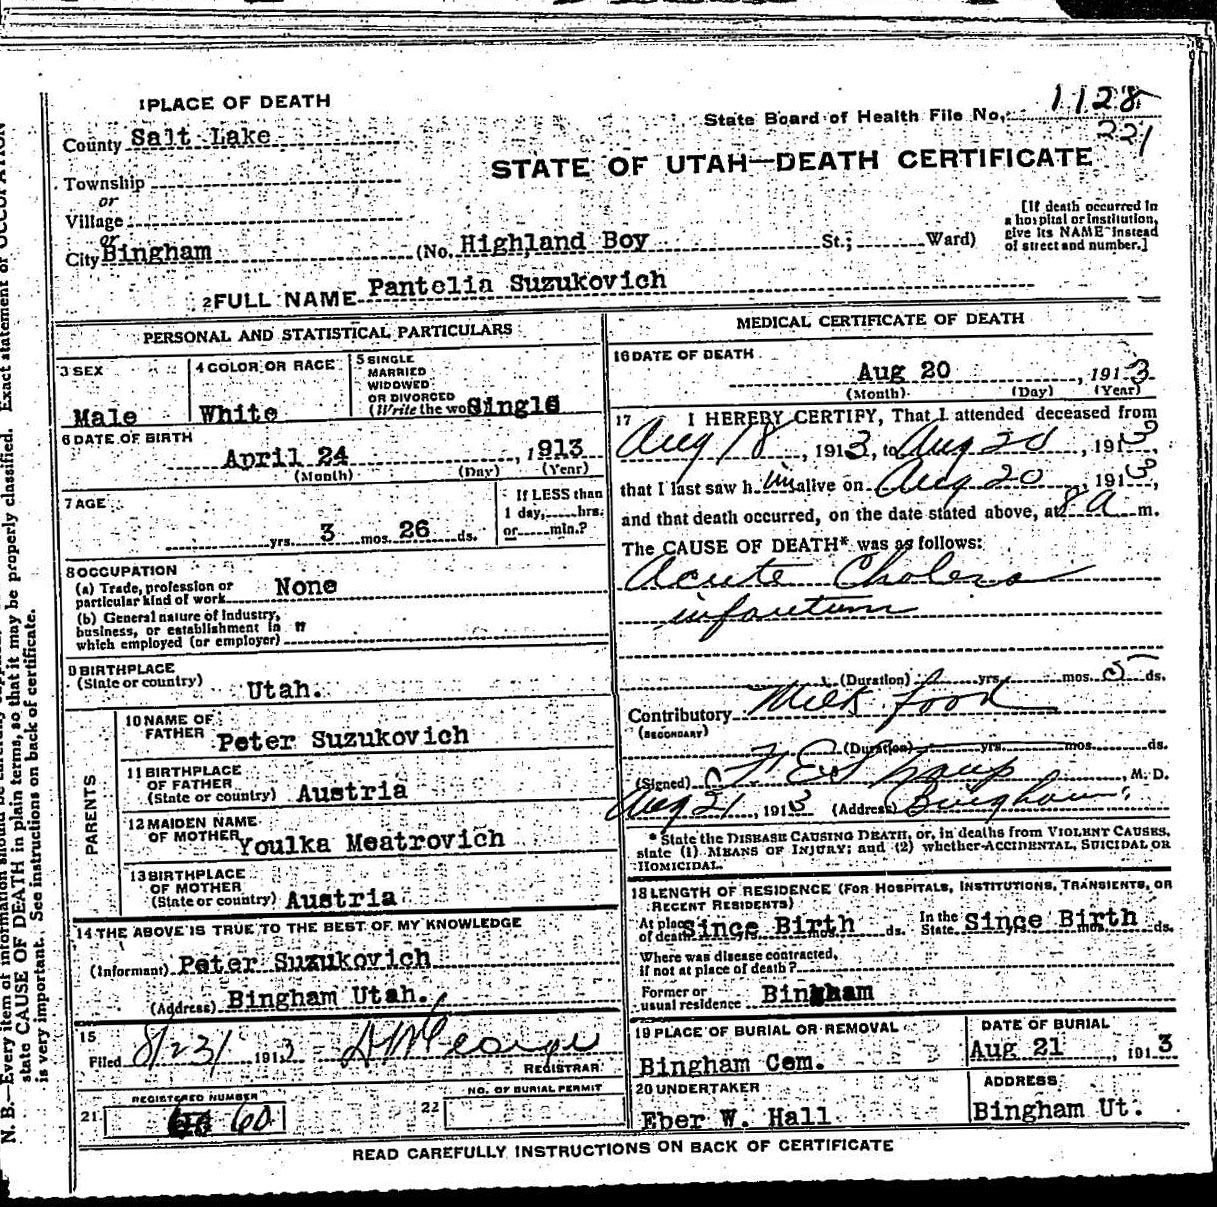 1128
State Board of Health File No.
221
STATE OF UTAH—DEATH CERTIFICATE
1 PLACE OF DEATH
County Salt Lake
Township
or
Village
or
City Bingham (No. Highland Boy St.; Ward)
[If death occurred in
a hospital or institution,
give its NAME instead
of street and number.]
2 FULL NAME Pantelia Suzukovich
PERSONAL AND STATISTICAL PARTICULARS
3 SEX
Male
4 COLOR OR RACE
White
5 SINGLE
MARRIED
WIDOWED
OR DIVORCED
(Write the wo Single
6 DATE OF BIRTH
April 24, 1913
(Month) (Day) (Year)
7 AGE
yrs. 3 mos. 26 ds.
If LESS than
1 day, hrs.
or min.?
8 OCCUPATION
(a) Trade, profession or
particular kind of work None
(b) General nature of industry,
business, or establishment in "
which employed (or employer)
9 BIRTHPLACE
(State or country) Utah.
PARENTS
10 NAME OF
FATHER Peter Suzukovich
11 BIRTHPLACE
OF FATHER
(State or country) Austria
12 MAIDEN NAME
OF MOTHER Youlka Meatrovich
13 BIRTHPLACE
OF MOTHER
(State or country) Austria
14 THE ABOVE IS TRUE TO THE BEST OF MY KNOWLEDGE
(Informant) Peter Suzukovich
(Address) Bingham Utah.
15
Filed 8/23/ 1913 REGISTRAR
REGISTERED NUMBER
21 60
NO. OF BURIAL PERMIT
22
MEDICAL CERTIFICATE OF DEATH
16 DATE OF DEATH
Aug 20, 1913
(Month) (Day) (Year)
17 I HEREBY CERTIFY, That I attended deceased from
Aug 18, 1913, to Aug 20, 1913,
that I last saw h im alive on Aug 20, 1913,
and that death occurred, on the date stated above, at 8 a m.
The CAUSE OF DEATH* was as follows:
Acute Cholera
infantum
(Duration) yrs. mos. 5 ds.
Contributory Milk food
(SECONDARY)
(Duration) yrs. mos. ds.
(Signed) M. D.
Aug 21, 1913 (Address) Bingham
* State the DISEASE CAUSING DEATH, or, in deaths from VIOLENT CAUSES,
state (1) MEANS OF INJURY; and (2) whether ACCIDENTAL, SUICIDAL OR
HOMICIDAL.
18 LENGTH OF RESIDENCE (FOR HOSPITALS, INSTITUTIONS, TRANSIENTS, OR
RECENT RESIDENTS)
At place
of death Since Birth yrs. mos. ds. In the
State Since Birth yrs. mos. ds.
Where was disease contracted,
if not at place of death?
Former or
usual residence Bingham
19 PLACE OF BURIAL OR REMOVAL
Bingham Cem.
DATE OF BURIAL
Aug 21, 1913
20 UNDERTAKER
Eber W. Hall
ADDRESS
Bingham Ut.
READ CAREFULLY INSTRUCTIONS ON BACK OF CERTIFICATE
N. B.—Every item of information should be
state CAUSE OF DEATH in plain terms, so that it may be properly classified. Exact statement of OCCUPATION
is very important. See instructions on back of certificate.